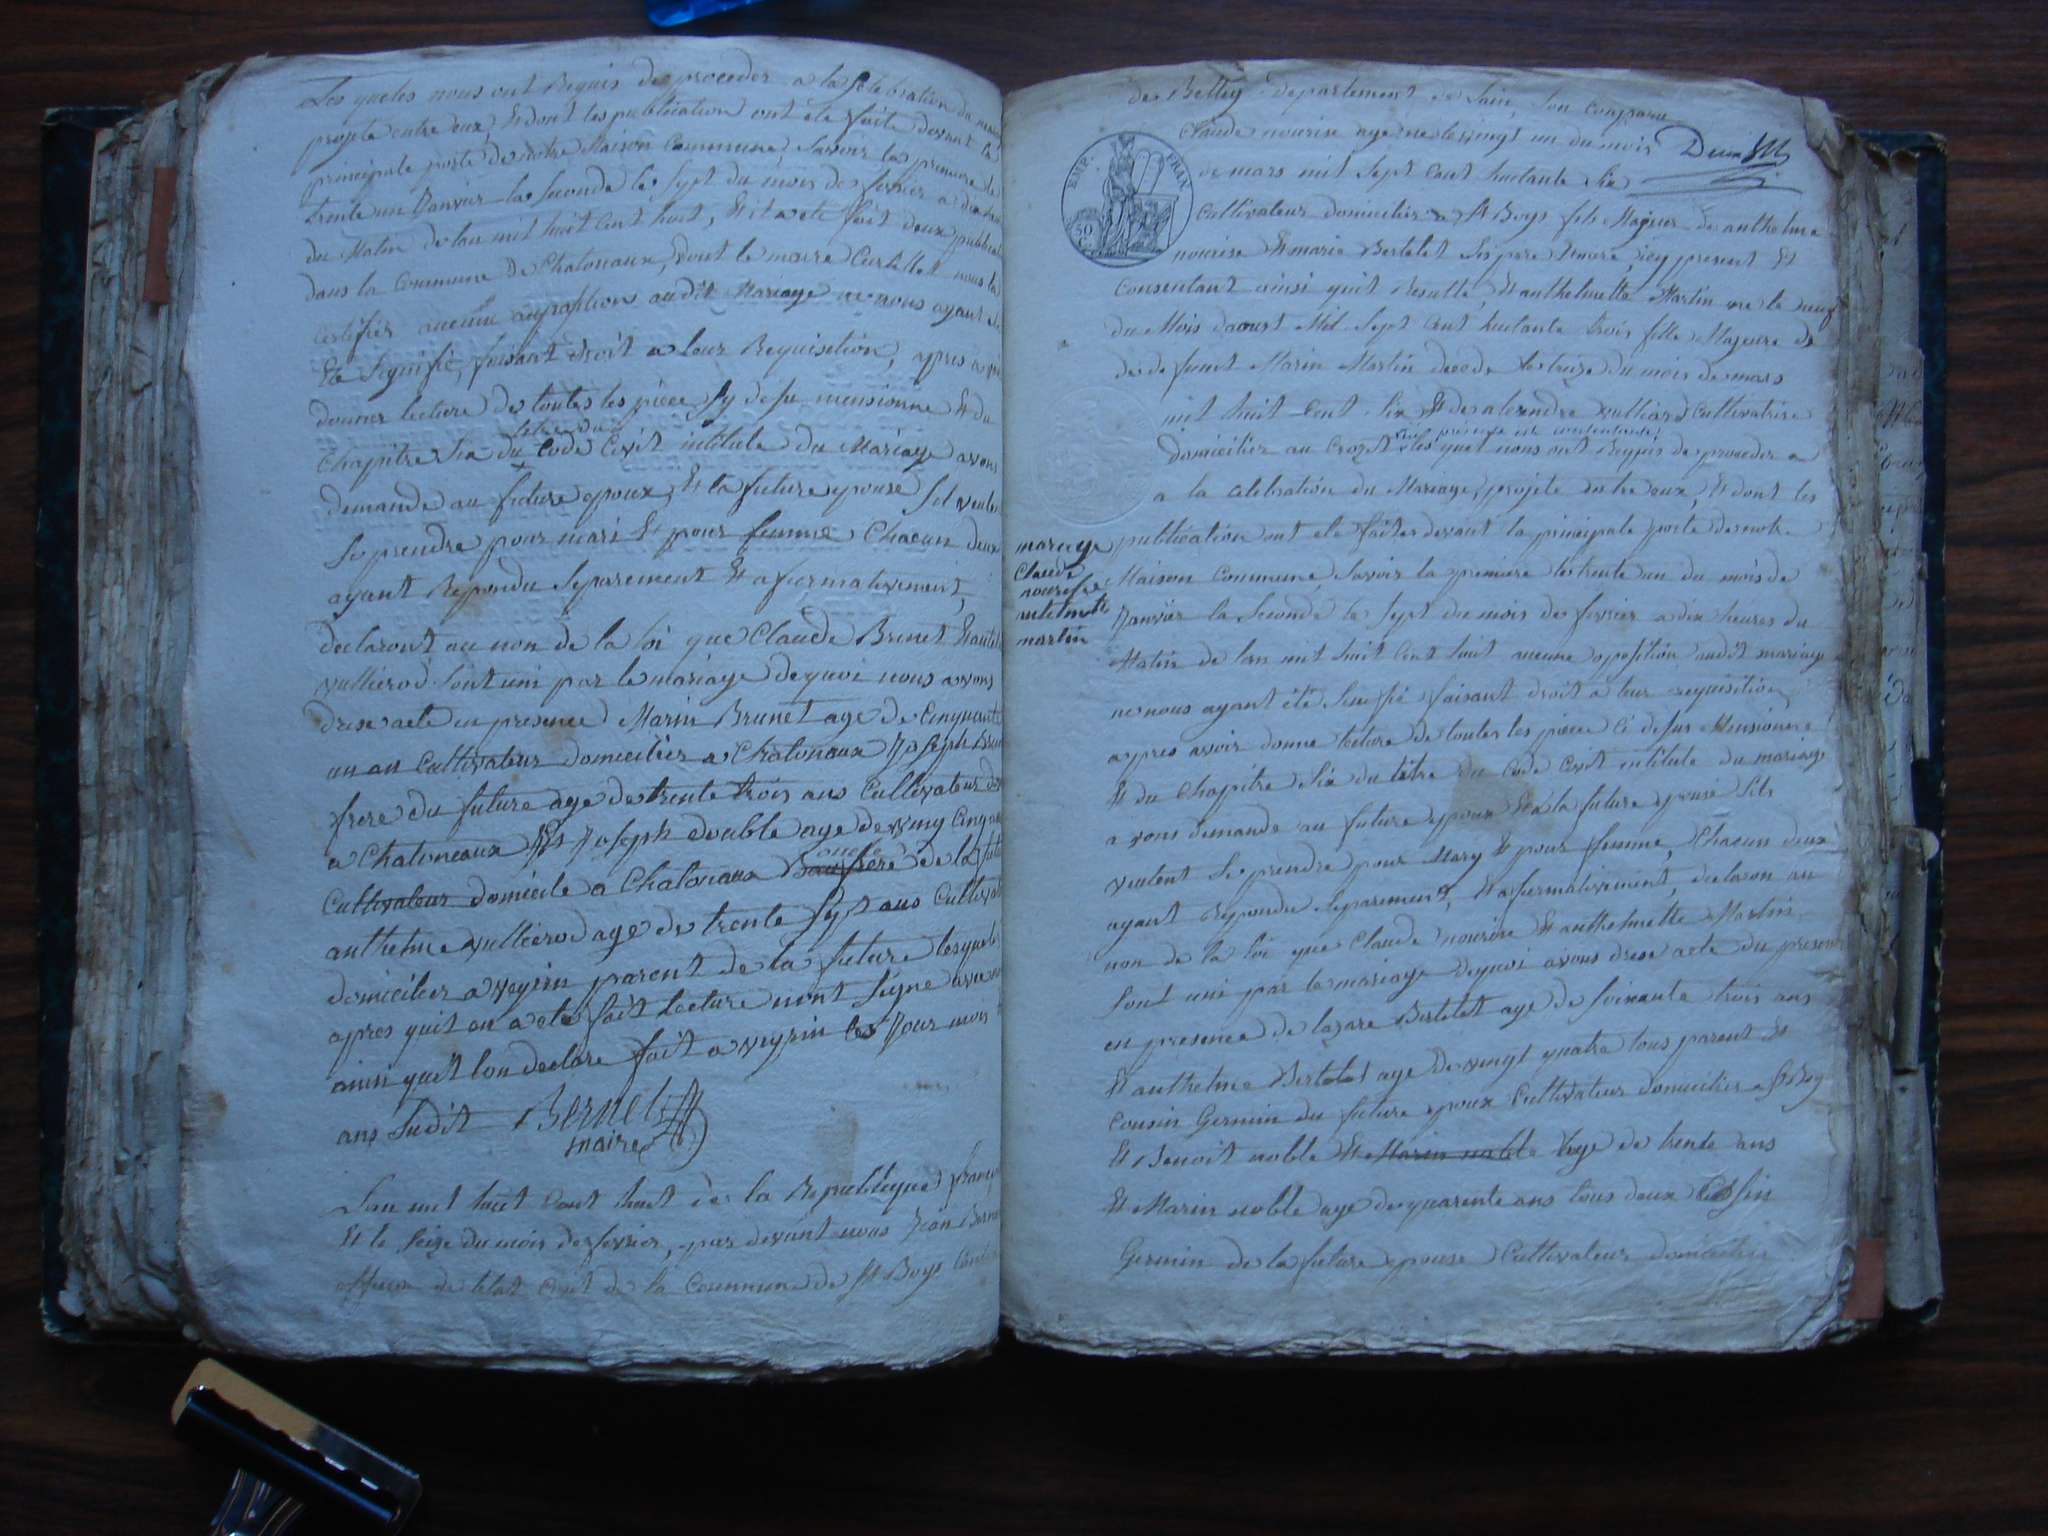 Les queles nous ont Requis de proceder a la Celebration du mariage
projete entre eux, Et dont les publication ont été faite devant la
principale porte de notre Maison Commune, savoir la premiere le
trente un Janvier la seconde le sept du mois de fevrier a dix heure
du Matin de lan mil huit Cent huit, Et il a été fait deux publicat
dans la Commune De Chatonaux, dont le maire Curtillet nous la
certifier aucune aupposition audit Mariage ne nous ayant ete
Et Signifié, faisant droit a leur Requisition, apres avoir
donner lecture de toutes les pièce sy desu mensionne Et du
titre du
Chapitre Six du Code Civit intitule du Mariage avons
demande au future epoux, Et la future epouse sil veulent
se prendre pour mari Et pour femme Chacun deux
ayant Repondu Separement Et afirmativement,
declaront au non de la loi que Claude Brunet Et antel
vullierod Sont uni par le mariage de quoi nous avons
drese acte en presence Marin Brunet age de Cinquante
un an Cultivateur domicilier a Chatonaux Joseph Brun
frere du future age de trente trois ans Cultivateur do
a Chatoneaux Et Joseph double age de ving Cinq an
oncle
Cultivateur domicile a Chatonaux Beaufrere de la fut
anthelme vullierod age de trente sept ans Cultivat
domicilier a veyrin parent de la future lesquels
apres quil en a ete fait Lecture nont signe avec no
ainsi quil lon declare fait a veyrin les Jour mois et
ans Sudit Bernet
maire
Lan mil huit Cent huit de la Republique françai
Et le seize du mois de fevrier, par devant nous Jean Berne
officier de letat Civit de la Commune de St Boys Canton
de Belley departement de Lain, son Comparue
Claude nourise age ne le vingt un du mois
de mars mil sept Cent huitante six
EMP. FRAN.
50
C.
Cultivateur domicilier a St Boys fils Majeur de anthelme
nourise Et marie Bertelet ses pere Et mere icy present Et
Consentant ainsi quil Resulte, Et anthelmette Martin ne le neuf
du Mois daoust Mil Sept Cent huitante trois fille Majeure de
de defunt Marin Martin decede le treize du mois de mars
mil huit Cent Six Et de alexandre vullierod Cultivatrice
icy presente et consentante
Domicilier au Crozet lesquel nous ont Requis de proceder a
a la Celebration du Mariage, projete entre eux, Et dont les
publication ont ete faites devant la principale porte de notre
Maison Commune, savoir la premiere le trente un du mois de
Janvier la seconde le sept du mois de fevrier a dix heures du
Matin de lan mil huit Cent huit aucune oposition audit mariage
mariage
Claude
nourise
antelmete
martin
ne nous ayant été Signifié faisant droit a leur requisition
appres avoir donne lecture de toutes les pièce Ci desus Mensionne
Et du Chapitre Six du titre du Code Civit intitule du mariage
avons demande au future epoux Et a la future epouse sils
veulent se prendre pour Mary Et pour femme, Chacun deux
ayant Repondu separement, Et afirmativement, declaron au
non de la loi que Claude nourise Et anthelmette Martin
sont uni par le mariage dequoi avons drese acte du present
en presence de lazare Bertelet age de soixante trois ans
Et anthelme Bertelet age De vingt quatre tous parent Et
Cousin Germin du future epoux Cultivateur domicilier a St Boy
Et Benoit noble Et Marin noble age de trente ans
Et Marin noble age de quarente ans tous deux
Germin de la future epouse Cultivateur domicilier